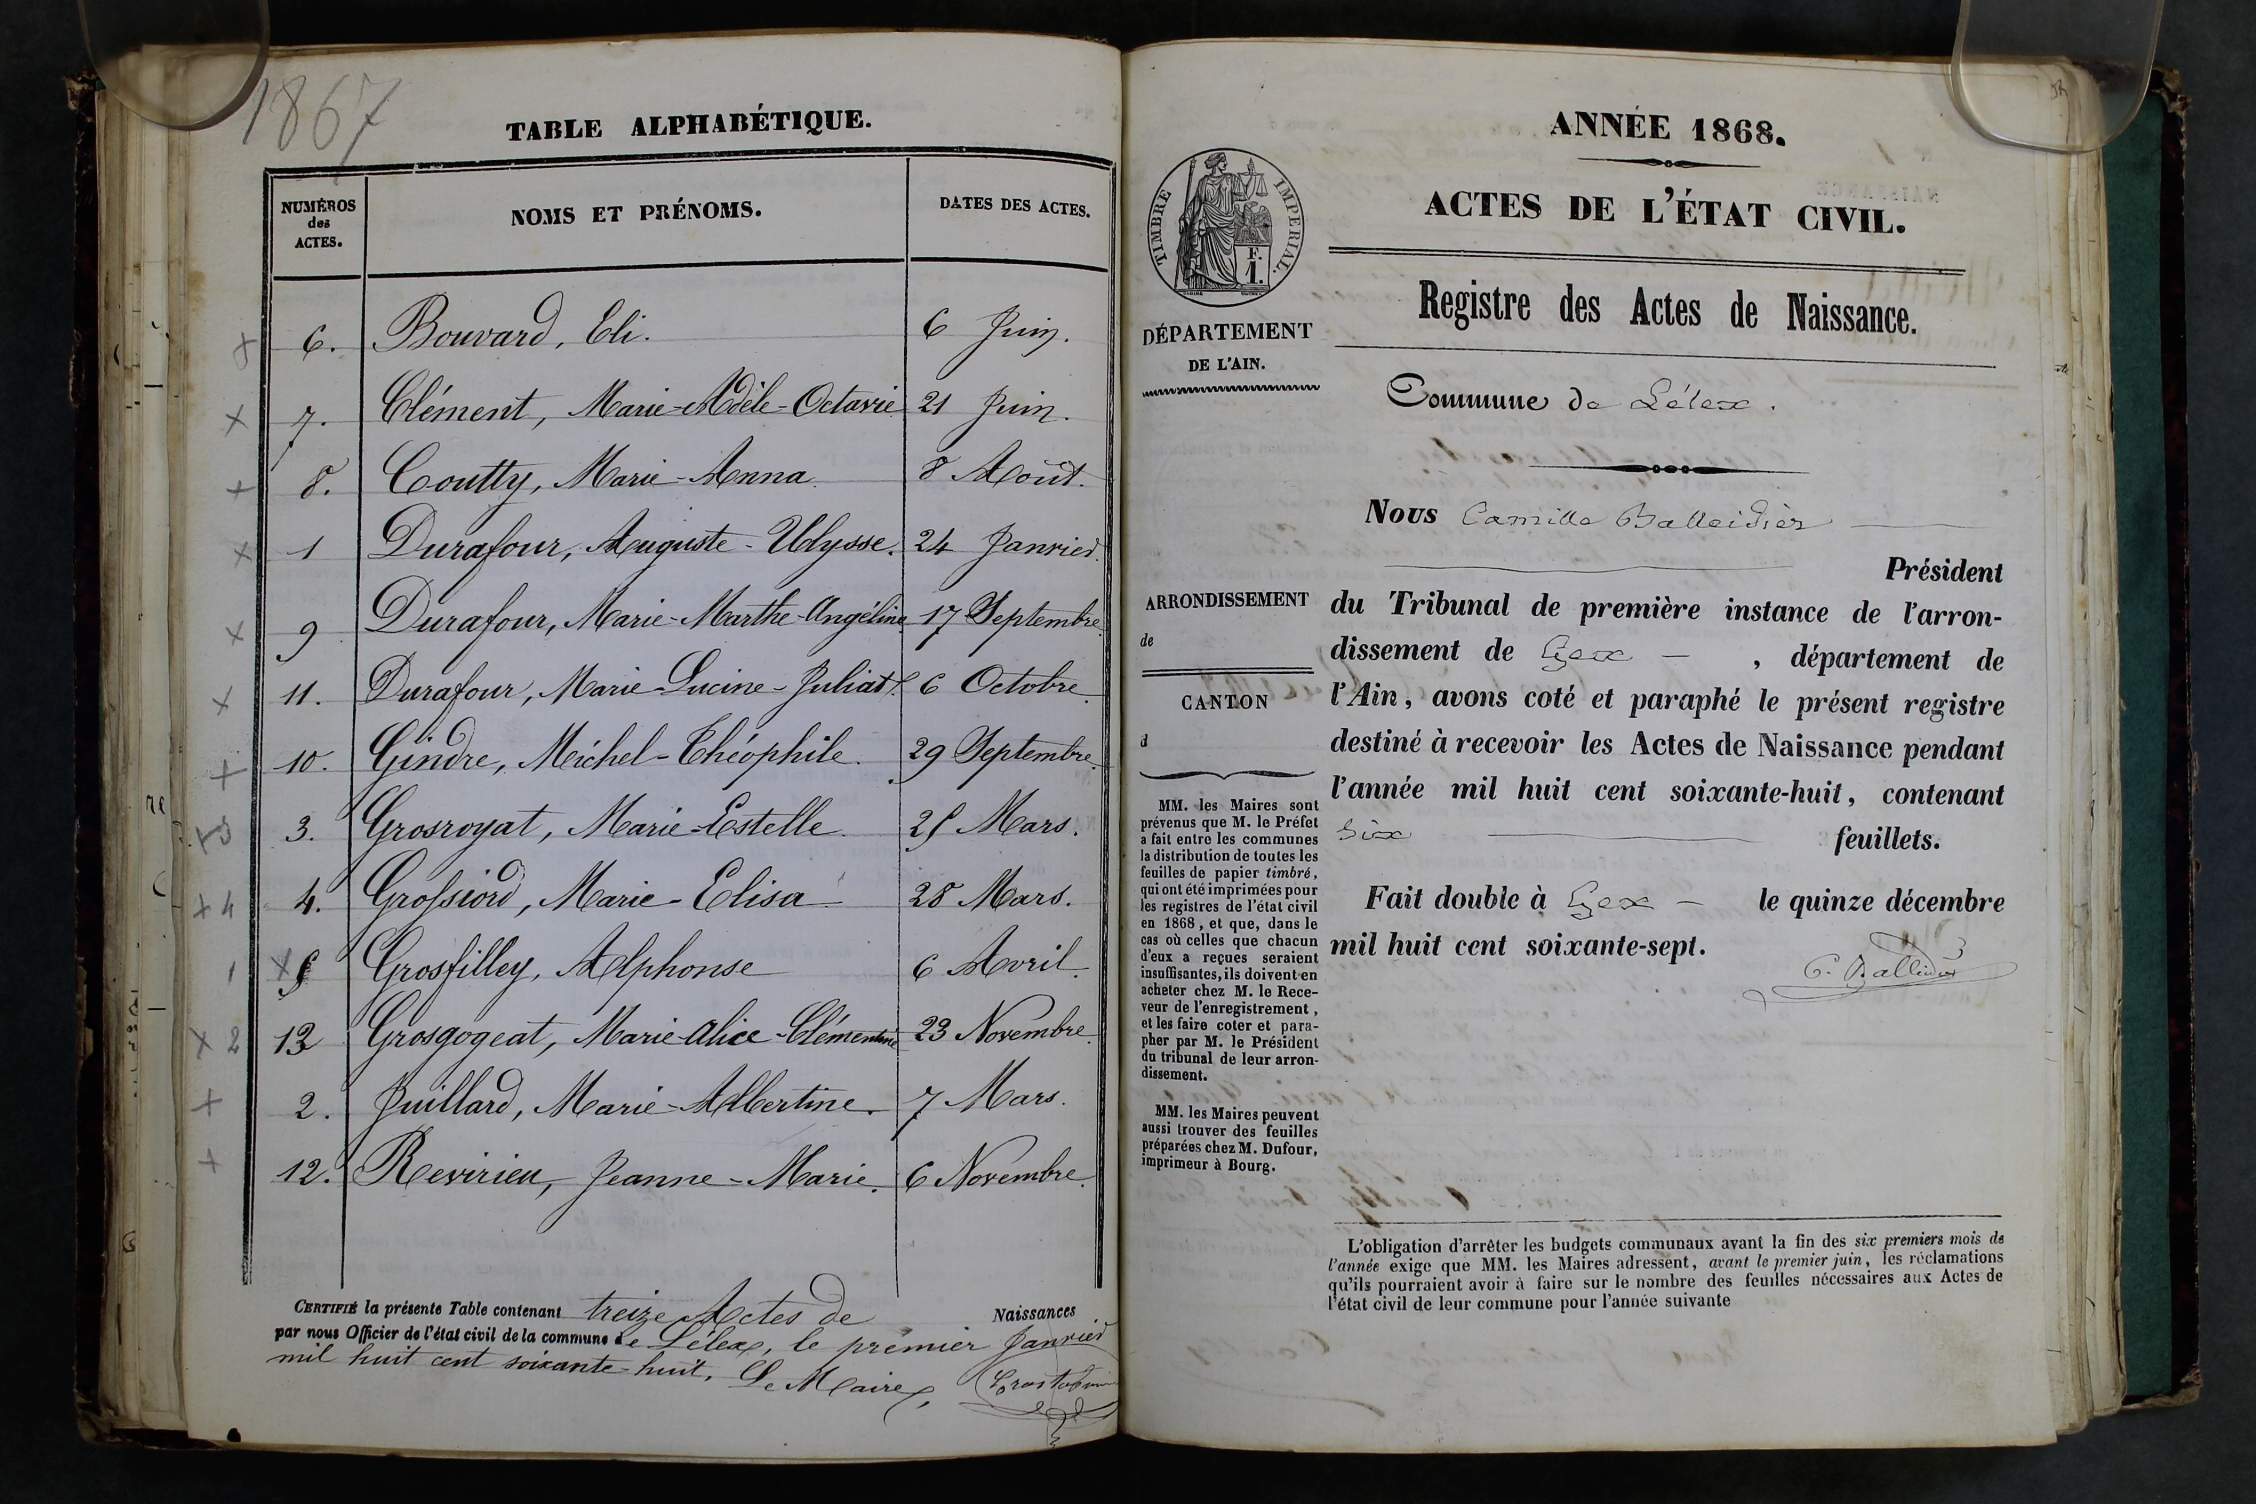 1867
TABLE ALPHABÉTIQUE.
NUMÉROS
des
ACTES.
NOMS ET PRÉNOMS.
DATES DES ACTES.
6. Bouvard, Eli. 6 Juin.
7. Clément, Marie-Adèle-Octavie 21 Juin.
8. Coutty, Marie-Anna 8 Août.
1 Durafour, Auguste-Ulysse. 24 Janvier.
9 Durafour, Marie-Marthe-Angéline 17 Septembre.
11. Durafour, Marie-Lucine- 6 Octobre.
10. Gindre, Michel-Théophile. 29 Septembre.
3. Grosroyat, Marie-Estelle. Mars.
4. Grossiord, Marie-Elisa 28 Mars.
5 Grosfilley, Alphonse 6 Avril.
13 Grosgogeat, Marie-Alice-Clémentine 23 Novembre.
2. Juillard, Marie-Albertine. 7 Mars.
12. Revirieu, Jeanne-Marie. 6 Novembre.
CERTIFIÉ la présente Table contenant treize Actes de Naissances
par nous Officier de l'état civil de la commune de Lélex, le premier Janvier
mil huit cent soixante-huit. Le Maire,
ANNÉE 1868.
ACTES DE L'ÉTAT CIVIL.
TIMBRE IMPERIAL.
F.
1.
Registre des Actes de Naissance.
DÉPARTEMENT
DE L'AIN.
Commune de Lélex.
Nous Camille Balleidier
Président
ARRONDISSEMENT
de
CANTON
d
du Tribunal de première instance de l'arron-
dissement de Gex , département de
l'Ain, avons coté et paraphé le présent registre
destiné à recevoir les Actes de Naissance pendant
l'année mil huit cent soixante-huit, contenant
six feuillets.
Fait double à Gex le quinze décembre
mil huit cent soixante-sept.
C. Balleidier
MM. les Maires sont
prévenus que M. le Préfet
a fait entre les communes
la distribution de toutes les
feuilles de papier timbré,
qui ont été imprimées pour
les registres de l'état civil
en 1868, et que, dans le
cas où celles que chacun
d'eux a reçues seraient
insuffisantes, ils doivent en
acheter chez M. le Rece-
veur de l'enregistrement,
et les faire coter et para-
pher par M. le Président
du tribunal de leur arron-
dissement.
MM. les Maires peuvent
aussi trouver des feuilles
préparées chez M. Dufour,
imprimeur à Bourg.
L'obligation d'arrêter les budgets communaux avant la fin des six premiers mois de
l'année exige que MM. les Maires adressent, avant le premier juin, les réclamations
qu'ils pourraient avoir à faire sur le nombre des feuilles nécessaires aux Actes de
l'état civil de leur commune pour l'année suivante